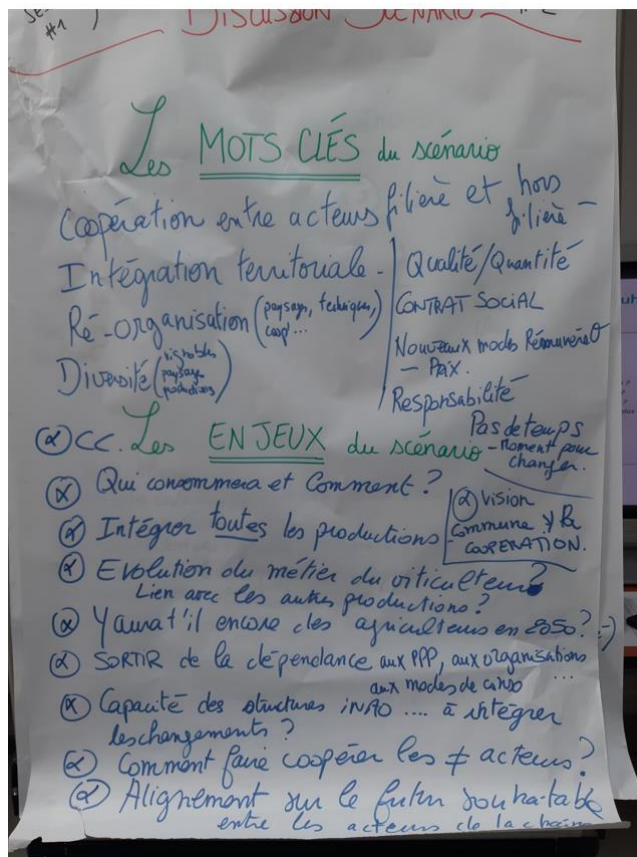 #1
DISCUSSION SCENARIO
Les MOTS CLÉS du scénario
Coopération entre acteurs filière et hors
filière -
Intégration territoriale -
Ré-organisation (paysages, techniques,
coop°...
Diversité (vignobles
paysage
productions)
Qualité/Quantité
CONTRAT SOCIAL
Nouveaux modes Rémunérat°
- PRIX.
Responsabilité
Pas de temps
- Moment pour
changer.
CC. Les ENJEUX du scénario
Qui consommera et Comment ?
Vision
Commune
COOPERATION.
Intégrer toutes les productions
Evolution du métier du viticulteur ?
Lien avec les autres productions ?
Y aura t'il encore des agriculteurs en 2050 ? :-)
SORTIR de la dépendance aux PPP, aux organisations
aux modes de ...
Capacité des structures iNAO .... à intégrer
les changements ?
Comment faire coopérer les ≠ acteurs ?
Alignement sur le futur souhaitable
entre les acteurs de la chaine